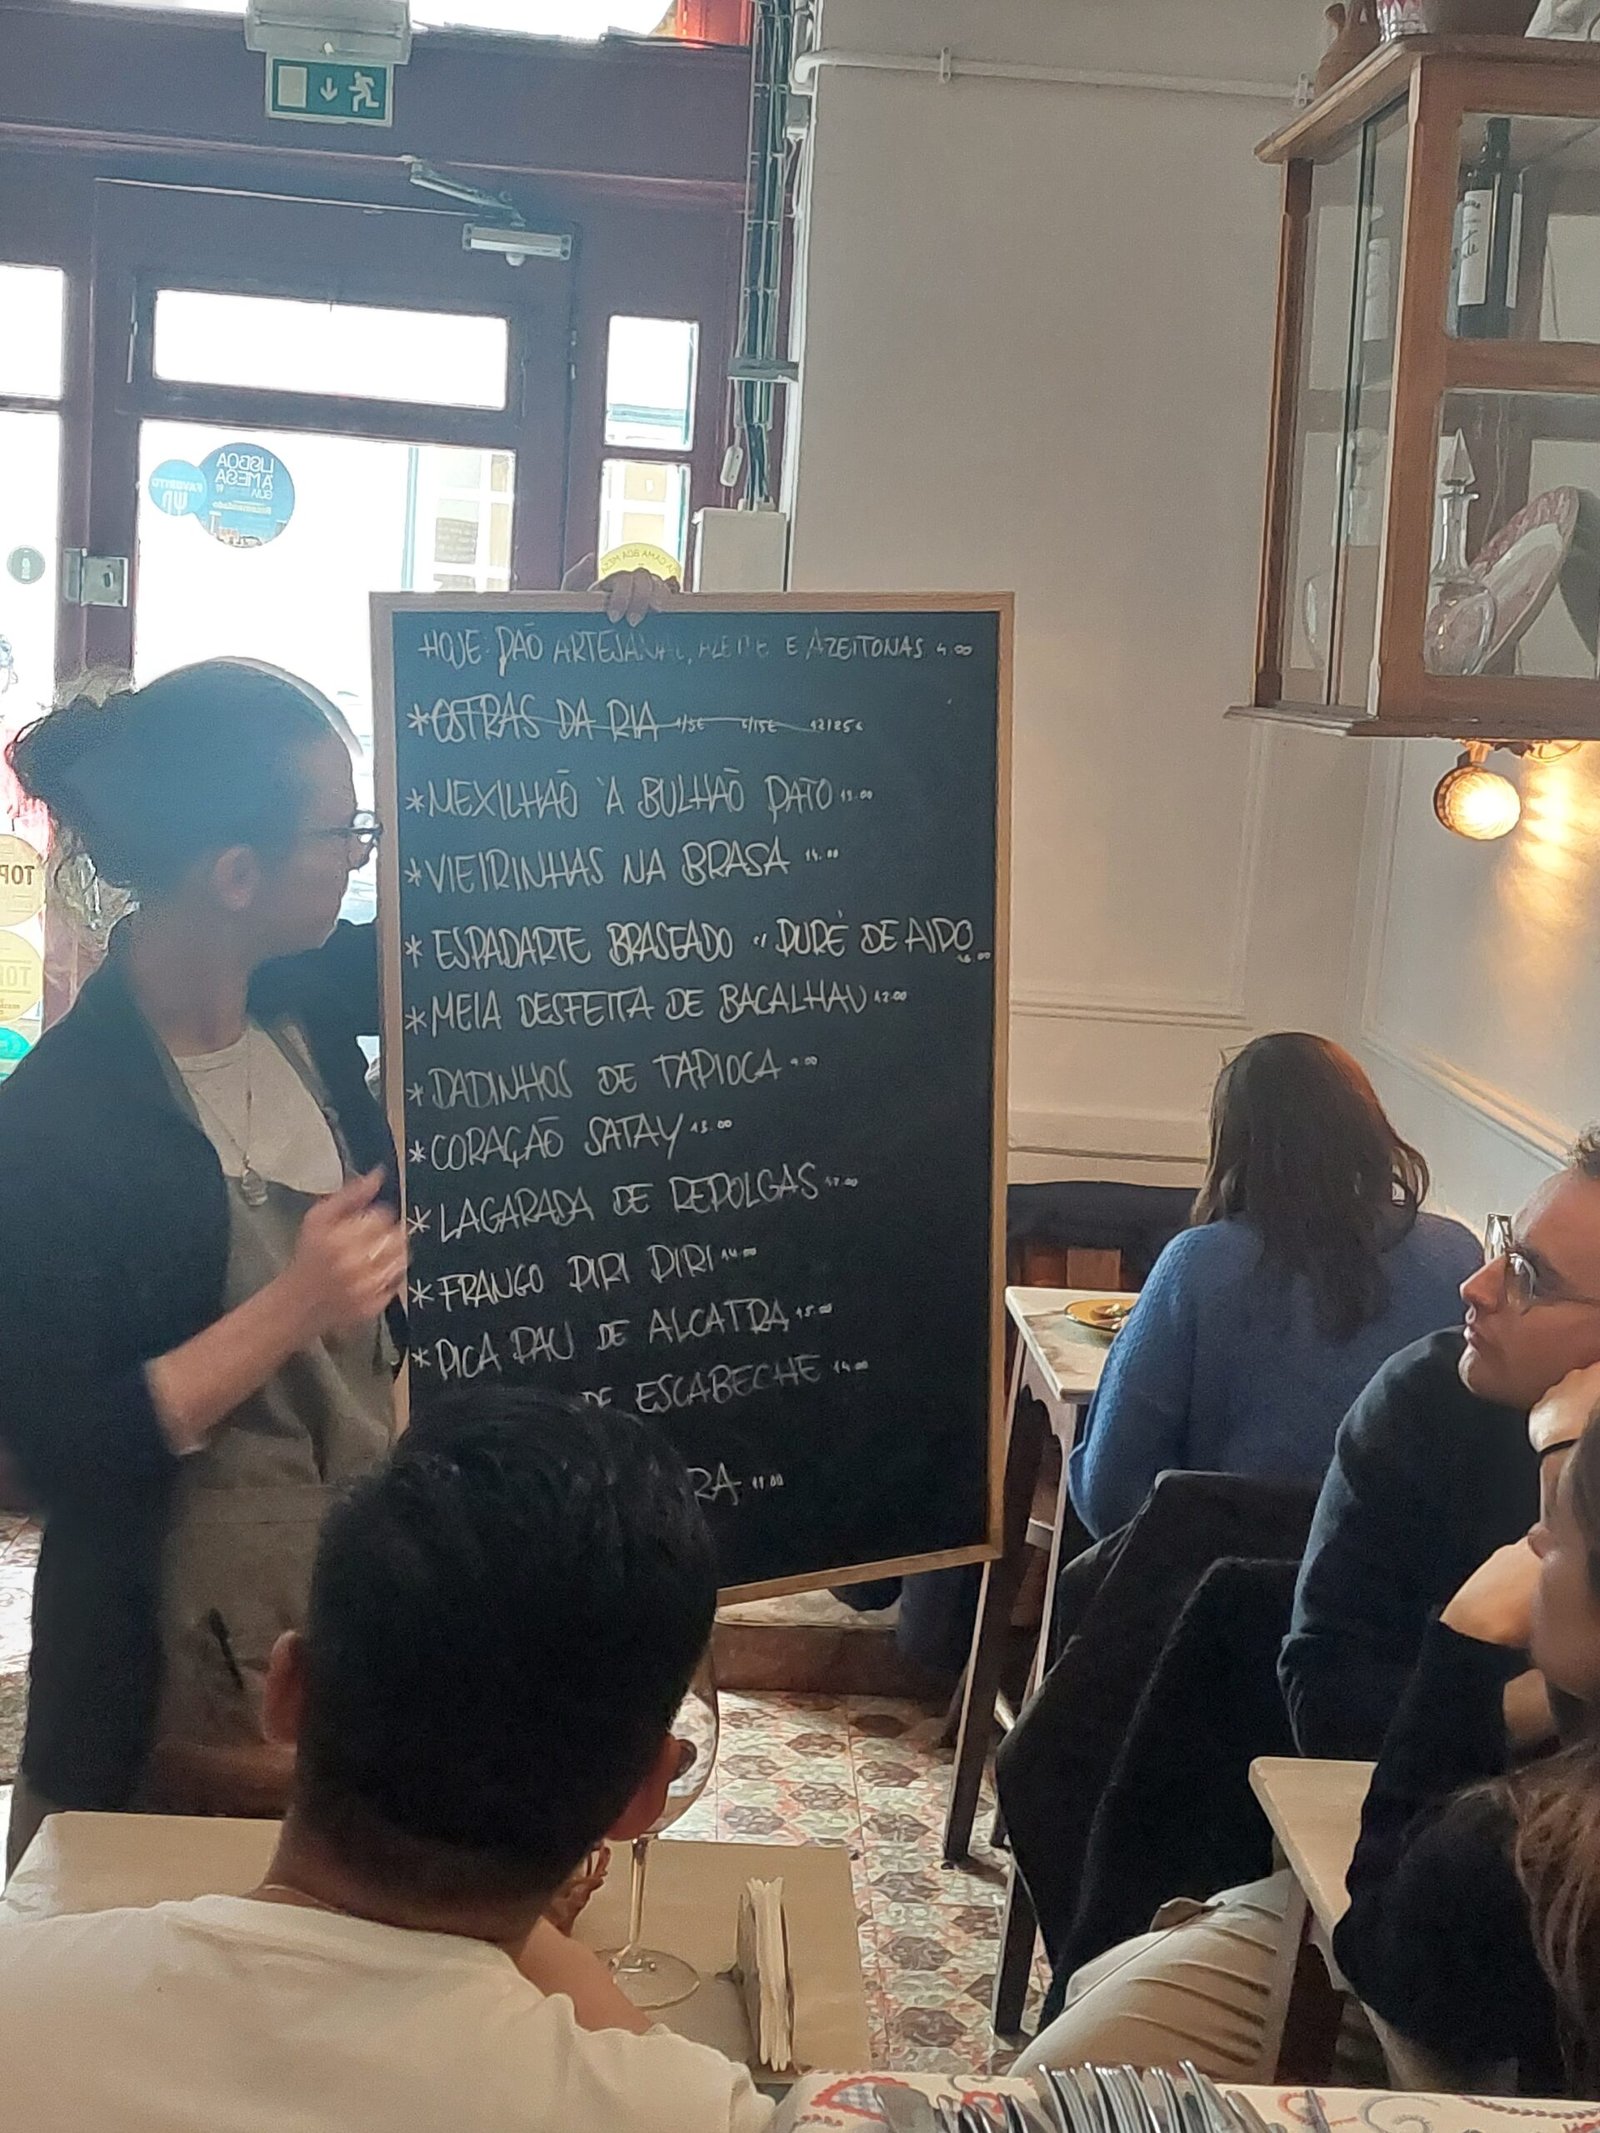 LISBOA
À MESA
GUIA
Recomendado
FAVORITO
BOA CAMA BOA MESA
TOP
TOP
HOJE: PÃO ARTESANAL, AZEITE E AZEITONAS 4.00
*OSTRAS DA RIA 1/3€ 6/15€ 12/25€
*MEXILHÃO À BULHÃO PATO 13.00
*VIEIRINHAS NA BRASA 14.00
*ESPADARTE BRASEADO c/ PURÉ DE AIPO 16.00
*MEIA DESFEITA DE BACALHAU 12.00
*DADINHOS DE TAPIOCA 9.00
*CORAÇÃO SATAY 13.00
*LAGARADA DE REPOLGAS 17.00
*FRANGO PIRI PIRI 14.00
*PICA PAU DE ALCATRA 15.00
DE ESCABECHE 14.00
RA 17.00